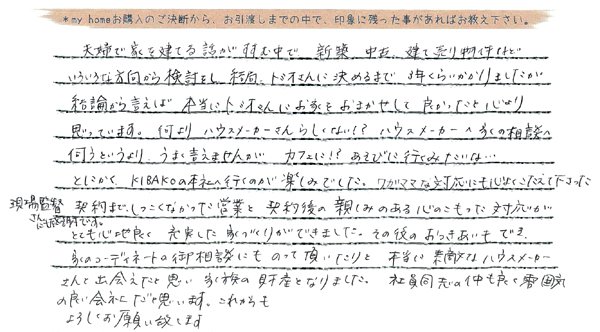 *my homeお購入のご決断から、お引渡しまでの中で、印象に残った事があればお教え下さい。
夫婦で家を建てる話が進む中で 新築 中古 建て売り物件など
いろいろな方向から検討をし 結局 トミオさんに決めるまで 3年くらいかかりましたが
結論から言えば 本当にトミオさんにお家をおまかせして 良かったと心より
思っています。何より ハウスメーカーさんらしくない!? ハウスメーカーへ家の相談へ
伺うというより、うまく言えませんが カフェに!? あそびに行くみたいな…
とにかく、KIBAKOの本社へ行くのが楽しみでした。ワガママな対応にも心よくこたえて下さった
現場監督さんにも感謝です。
契約までしつこくなかった営業と 契約後の親しみのある心のこもった対応が
とても心地良く 充実した家づくりができました。その後のお付きあいもでき、
家のコーディネートの御相談にものって頂いたりと 本当に素敵なハウスメーカー
さんと出会えたと思い 家族の財産となりました。 社員同志の仲も良く雰囲気
の良い会社だと思います。これからも
よろしくお願い致します